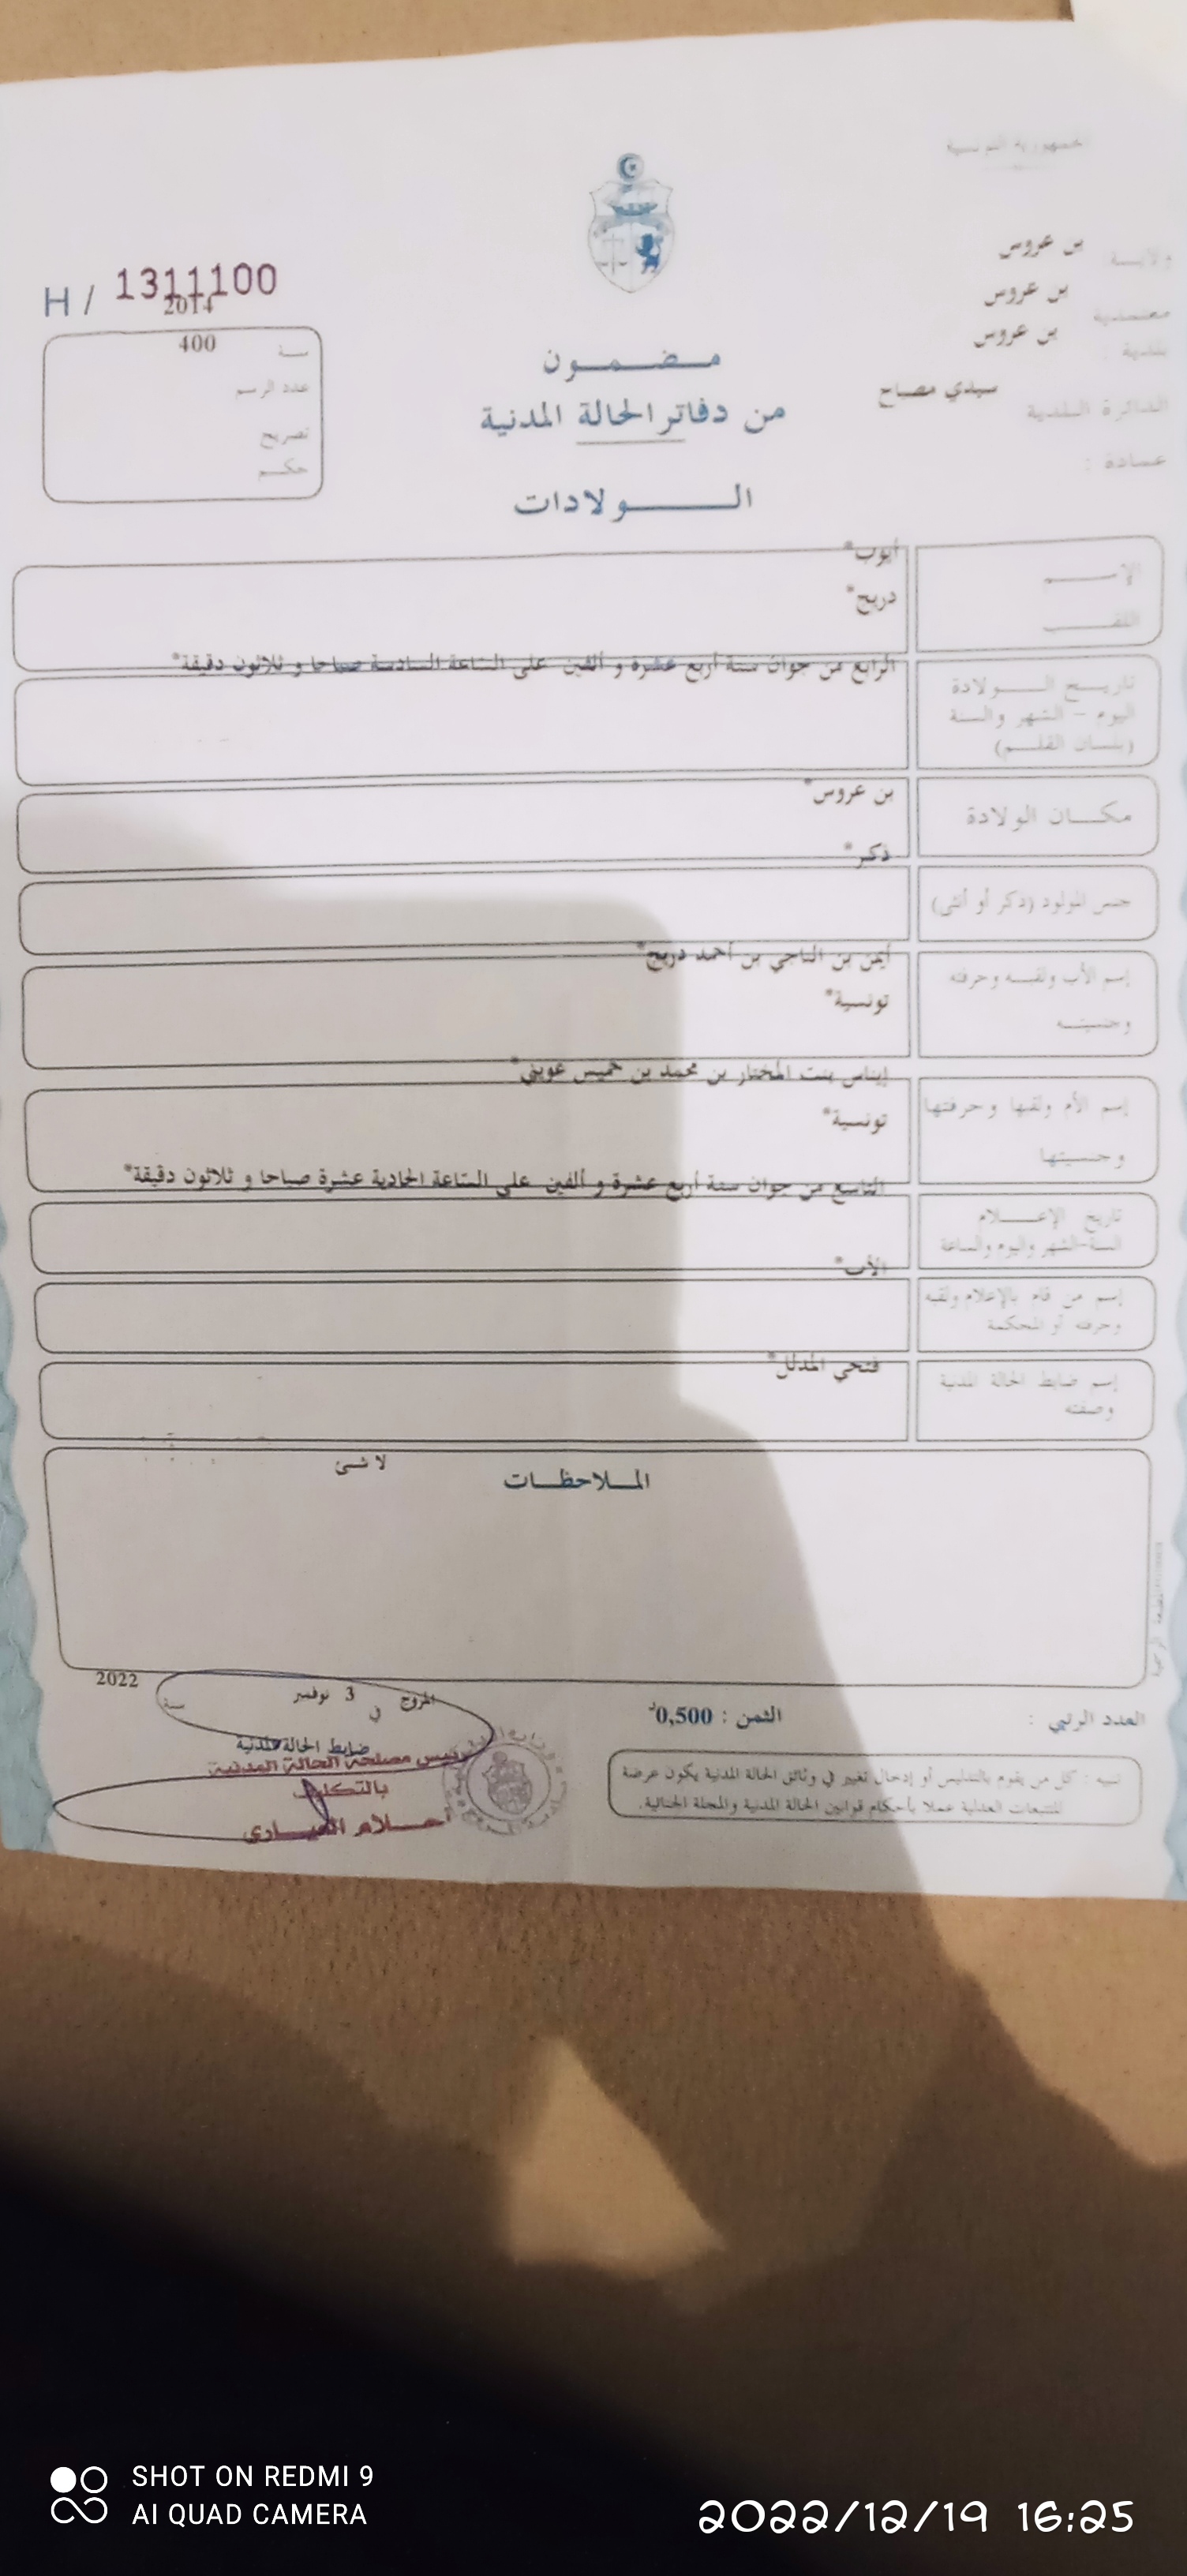 الجمهورية التونسية
ولاية بن عروس
معتمدية بن عروس
بلدية : بن عروس
الدائرة البلدية سيدي مصباح
عمادة :
H / 1311100
2014
سنة
400
عدد الرسم
تصريح
حكم
مضمون
من دفاتر الحالة المدنية
الولادات
الإسم أيوب*
اللقب دريج*
تاريخ الولادة
اليوم - الشهر والسنة
(بلسان القلم)
الرابع من جوان سنة أربع عشرة و ألفين على الساعة السادسة صباحا و ثلاثون دقيقة*
مكان الولادة بن عروس*
جنس المولود (ذكر أو أنثى) ذكر*
إسم الأب ولقبه وحرفته أيمن بن الناجي بن أحمد دريج*
وجنسيته تونسية*
إسم الأم ولقبها وحرفتها إيناس بنت المختار بن محمد بن خميس عويني*
وجنسيتها تونسية*
تاريخ الإعلام
السنة-الشهر واليوم والساعة
التاسع من جوان سنة أربع عشرة و ألفين على الساعة الحادية عشرة صباحا و ثلاثون دقيقة*
إسم من قام بالإعلام ولقبه
وحرفته أو المحكمة
الأب*
إسم ضابط الحالة المدنية
وصفته
فتحي المدلل*
الملاحظات
لا شئ
العدد الرتبي :
الثمن : 0,500د
المروج في 3 نوفمبر سنة 2022
ضابط الحالة المدنية
رئيس مصلحة الحالة المدنية
بالتكليف
تنبيه : كل من يقوم بالتدليس أو إدخال تغيير في وثائق الحالة المدنية يكون عرضة
للتتبعات العدلية عملا بأحكام قوانين الحالة المدنية والمجلة الجنائية.
SHOT ON REDMI 9
AI QUAD CAMERA
2022/12/19 16:25